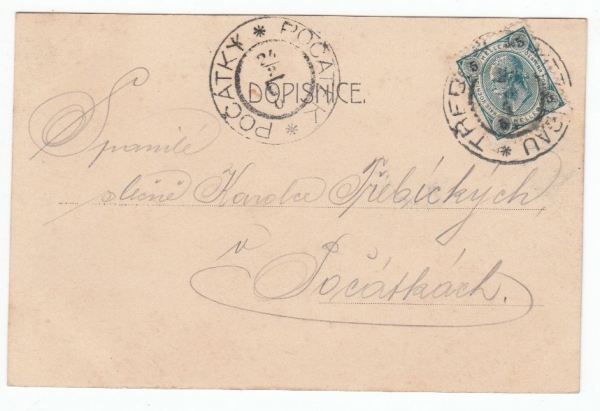 POČÁTKY * POČÁTKY *
24
DOPISNICE.
5 5
HELLER
Spanilé
slečně Karolce Třebických
v
Počátkách.